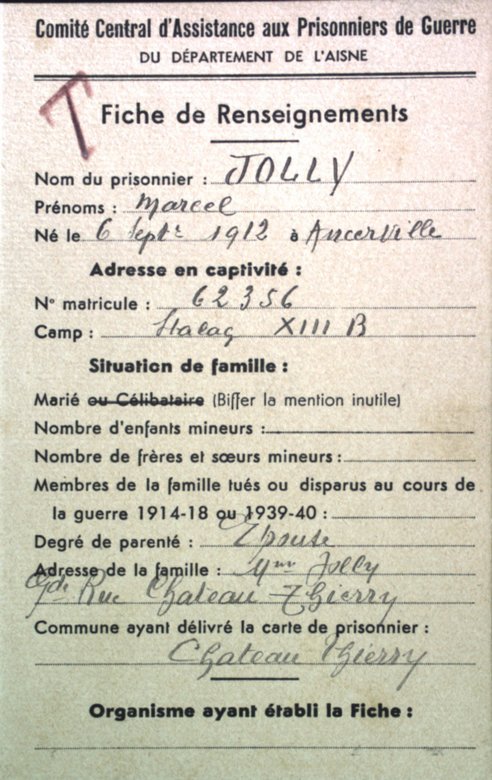 Comité Central d'Assistance aux Prisonniers de Guerre
DU DÉPARTEMENT DE L'AISNE
T
Fiche de Renseignements
Nom du prisonnier : JOLLY
Prénoms : Marcel
Né le 6 Septe 1912 à Ancerville
Adresse en captivité :
N° matricule : 62356
Camp : Stalag XIII B
Situation de famille :
Marié ou Célibataire (Biffer la mention inutile)
Nombre d'enfants mineurs :
Nombre de frères et sœurs mineurs :
Membres de la famille tués ou disparus au cours de
la guerre 1914-18 ou 1939-40 :
Degré de parenté : Epouse
Adresse de la famille : Mme Jolly
Gde Rue Chateau Thierry
Commune ayant délivré la carte de prisonnier :
Chateau Thierry
Organisme ayant établi la Fiche :